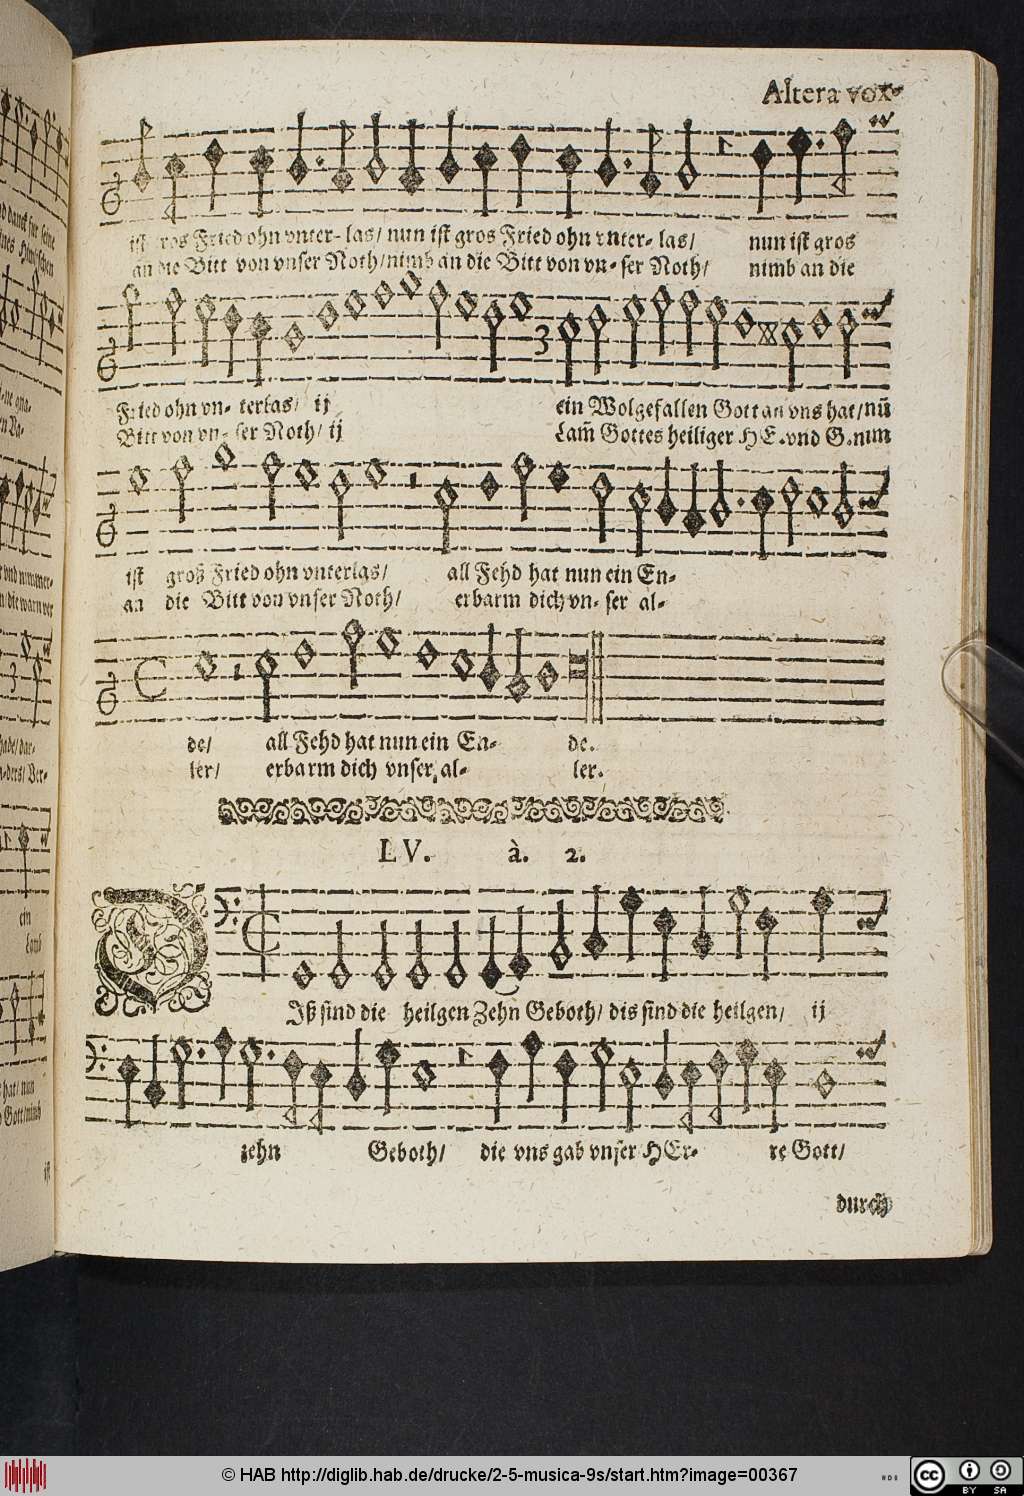 Altera vox.
ist gros Fried ohn vnter- las/ nun ist gros Fried ohn vnter- las/ nun ist gros
an die Bitt von vnser Noth/ nimb an die Bitt von vn- ser Noth/ nimb an die
Fried ohn vn- terlas/ ij ein Wolgefallen Gott an vns hat/ nū
Bitt von vn- ser Noth/ ij Lam̄ Gottes heiliger HE. vnd G. nim
3
ist groß Fried ohn vnterlas/ all Fehd hat nun ein En-
an die Bitt von vnser Noth/ erbarm dich vn- ser al-
de/ all Fehd hat nun ein En- de.
ler/ erbarm dich vnser al- ler.
LV. à. 2.
DIß sind die heilgen Zehn Geboth/ dis sind die heilgen/ ij
zehn Geboth/ die vns gab vnser HEr- re Gott/
durch
nd danck für seine
nun
© HAB http://diglib.hab.de/drucke/2-5-musica-9s/start.htm?image=00367
CC BY SA